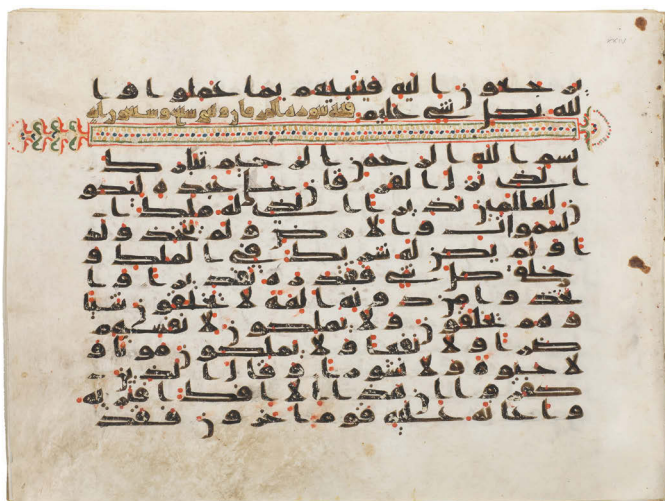 يرجعون اليه فينبيهم بما عملوا وا
لله بكل شي عليم
بسم الله الرحمن الرحيم تبرك
الذي نزل الفرقان على عبده ليكو
ن للعلمين نذيرا الذي له ملك ا
لسموات والارض ولم يتخذ ولد
ا ولم يكن له شريك في الملك و
خلق كل شي فقدره تقديرا وا
تخذوا من دونه الهة لا يخلقون شيا
وهم يخلقون ولا يملكون لانفسهم
ضرا ولا نفعا ولا يملكون موتا و
لا حيوة ولا نشورا وقال الذين
كفروا ان هذا الا افك افتريه
واعانه عليه قوم اخرون فقد